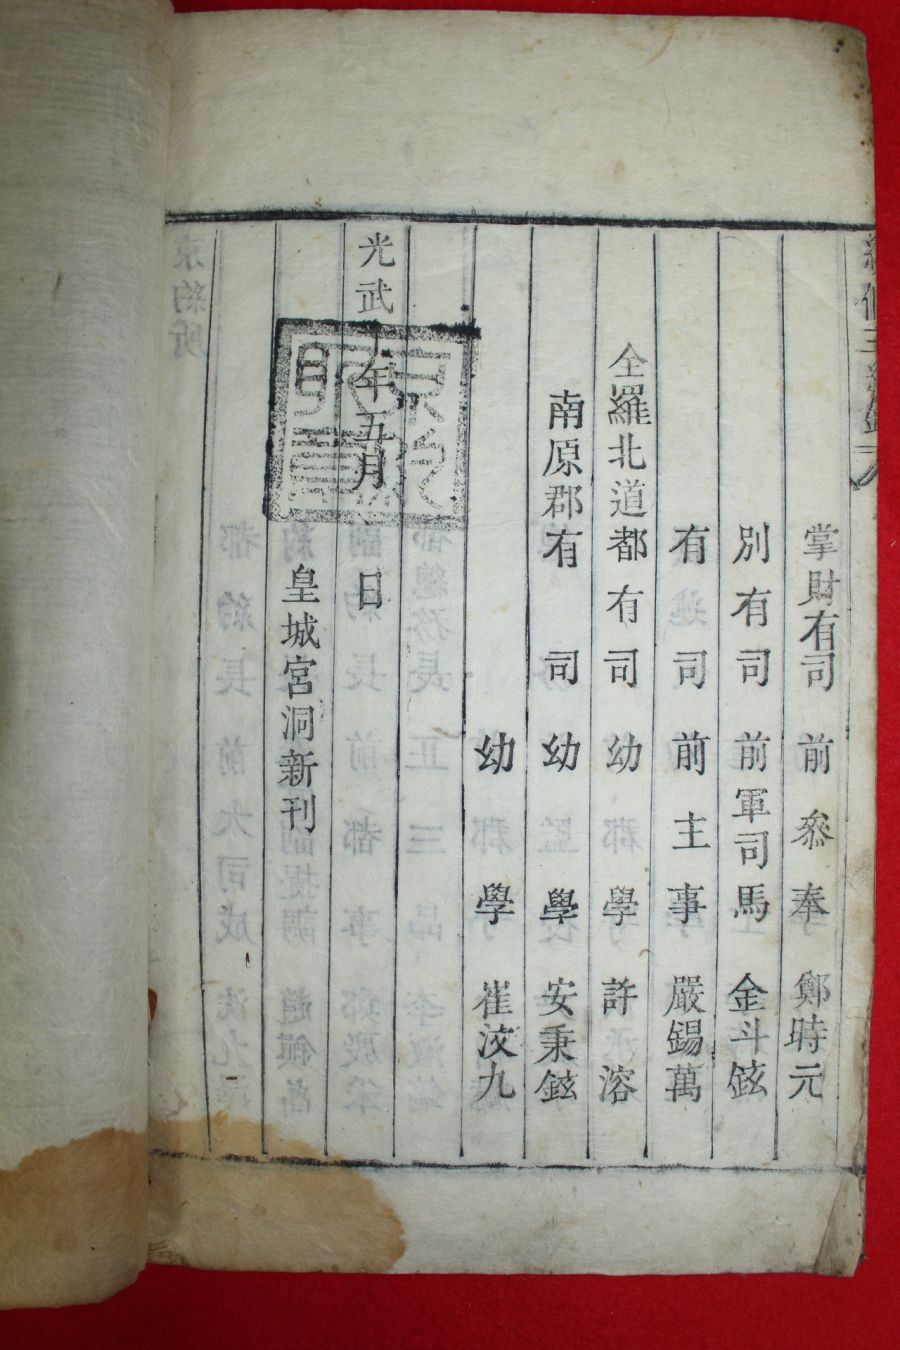 掌財有司 前參奉 鄭時元
別有司 前軍司馬 金斗鉉
有司 前主事 嚴錫萬
全羅北道都有司 幼學 許溶
南原郡有司 幼學 安秉鉉
幼學 崔汶九
光武 年五月 日
皇城宮洞新刊